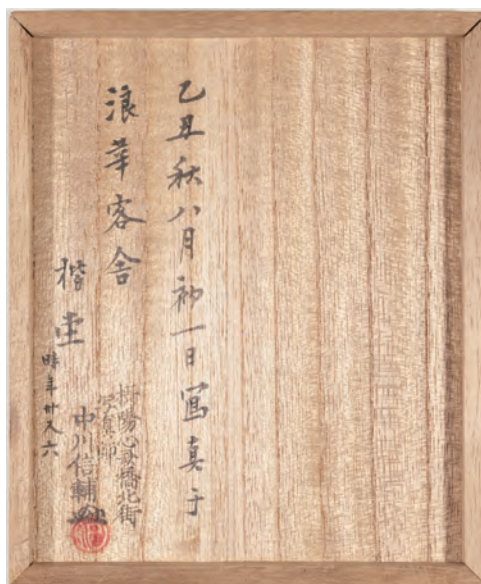 乙丑秋八月初一日冩真于
浪華客舎
堂
時年廿又六
陽心斎橋北街
写真師
中川信輔